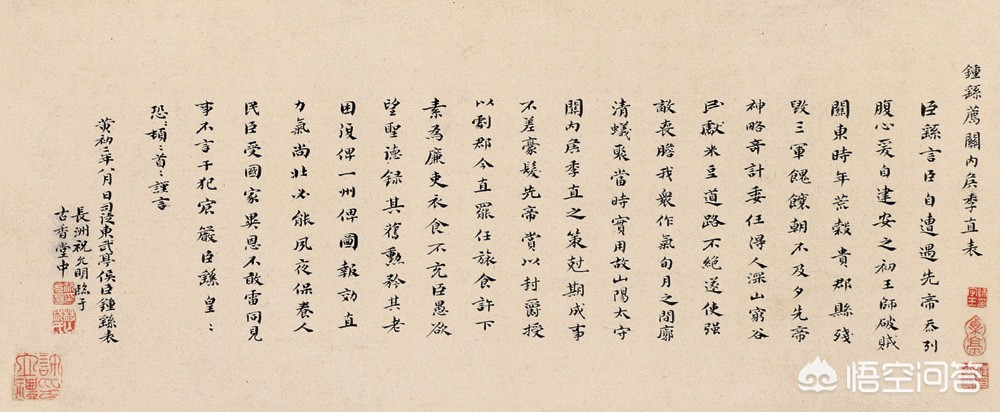 鍾繇薦關內矦季直表
臣繇言臣自遭遇先帝忝列
腹心爰自建安之初王師破賊
關東時年荒穀貴郡縣殘
毀三軍餽饟朝不及夕先帝
神略奇計委任得人深山窮谷
民獻米豆道路不絕遂使强
敵喪膽我衆作氣旬月之間廓
清蟻聚當時實用故山陽太守
關內矦季直之策尅期成事
不差豪髮先帝賞以封爵授
以劇郡今直罷任旅食許下
素為廉吏衣食不充臣愚欲
望聖德録其舊勲矜其老
困復俾一州俾圖報効直
力氣尚壯必能夙夜保養人
民臣受國家異恩不敢雷同見
事不言干犯宸嚴臣繇皇:
恐:頓:首:謹言
黃初二年八月日司徒東武亭侯臣鍾繇表
長洲祝允明臨于
古香堂中
悟空问答